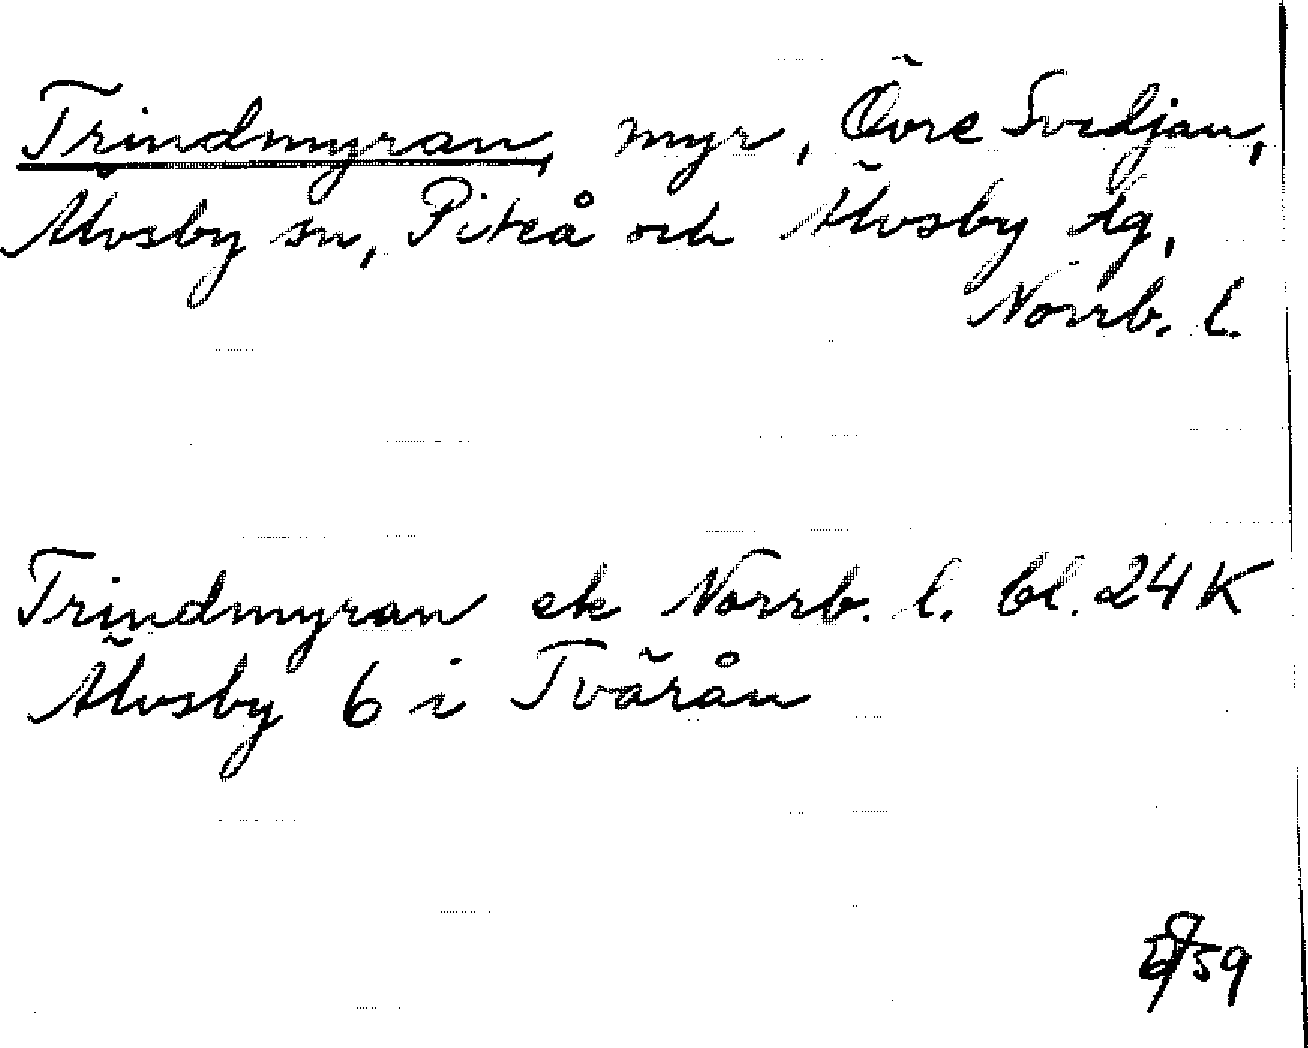 Trindmyran, myr, Övre Svedjan,
Älvsby sn, Piteå och Älvsby tg,
Norrb. l.
Trindmyran ek Norrb. l. bl. 24 K
Älvsby 6 i Tvärån
59